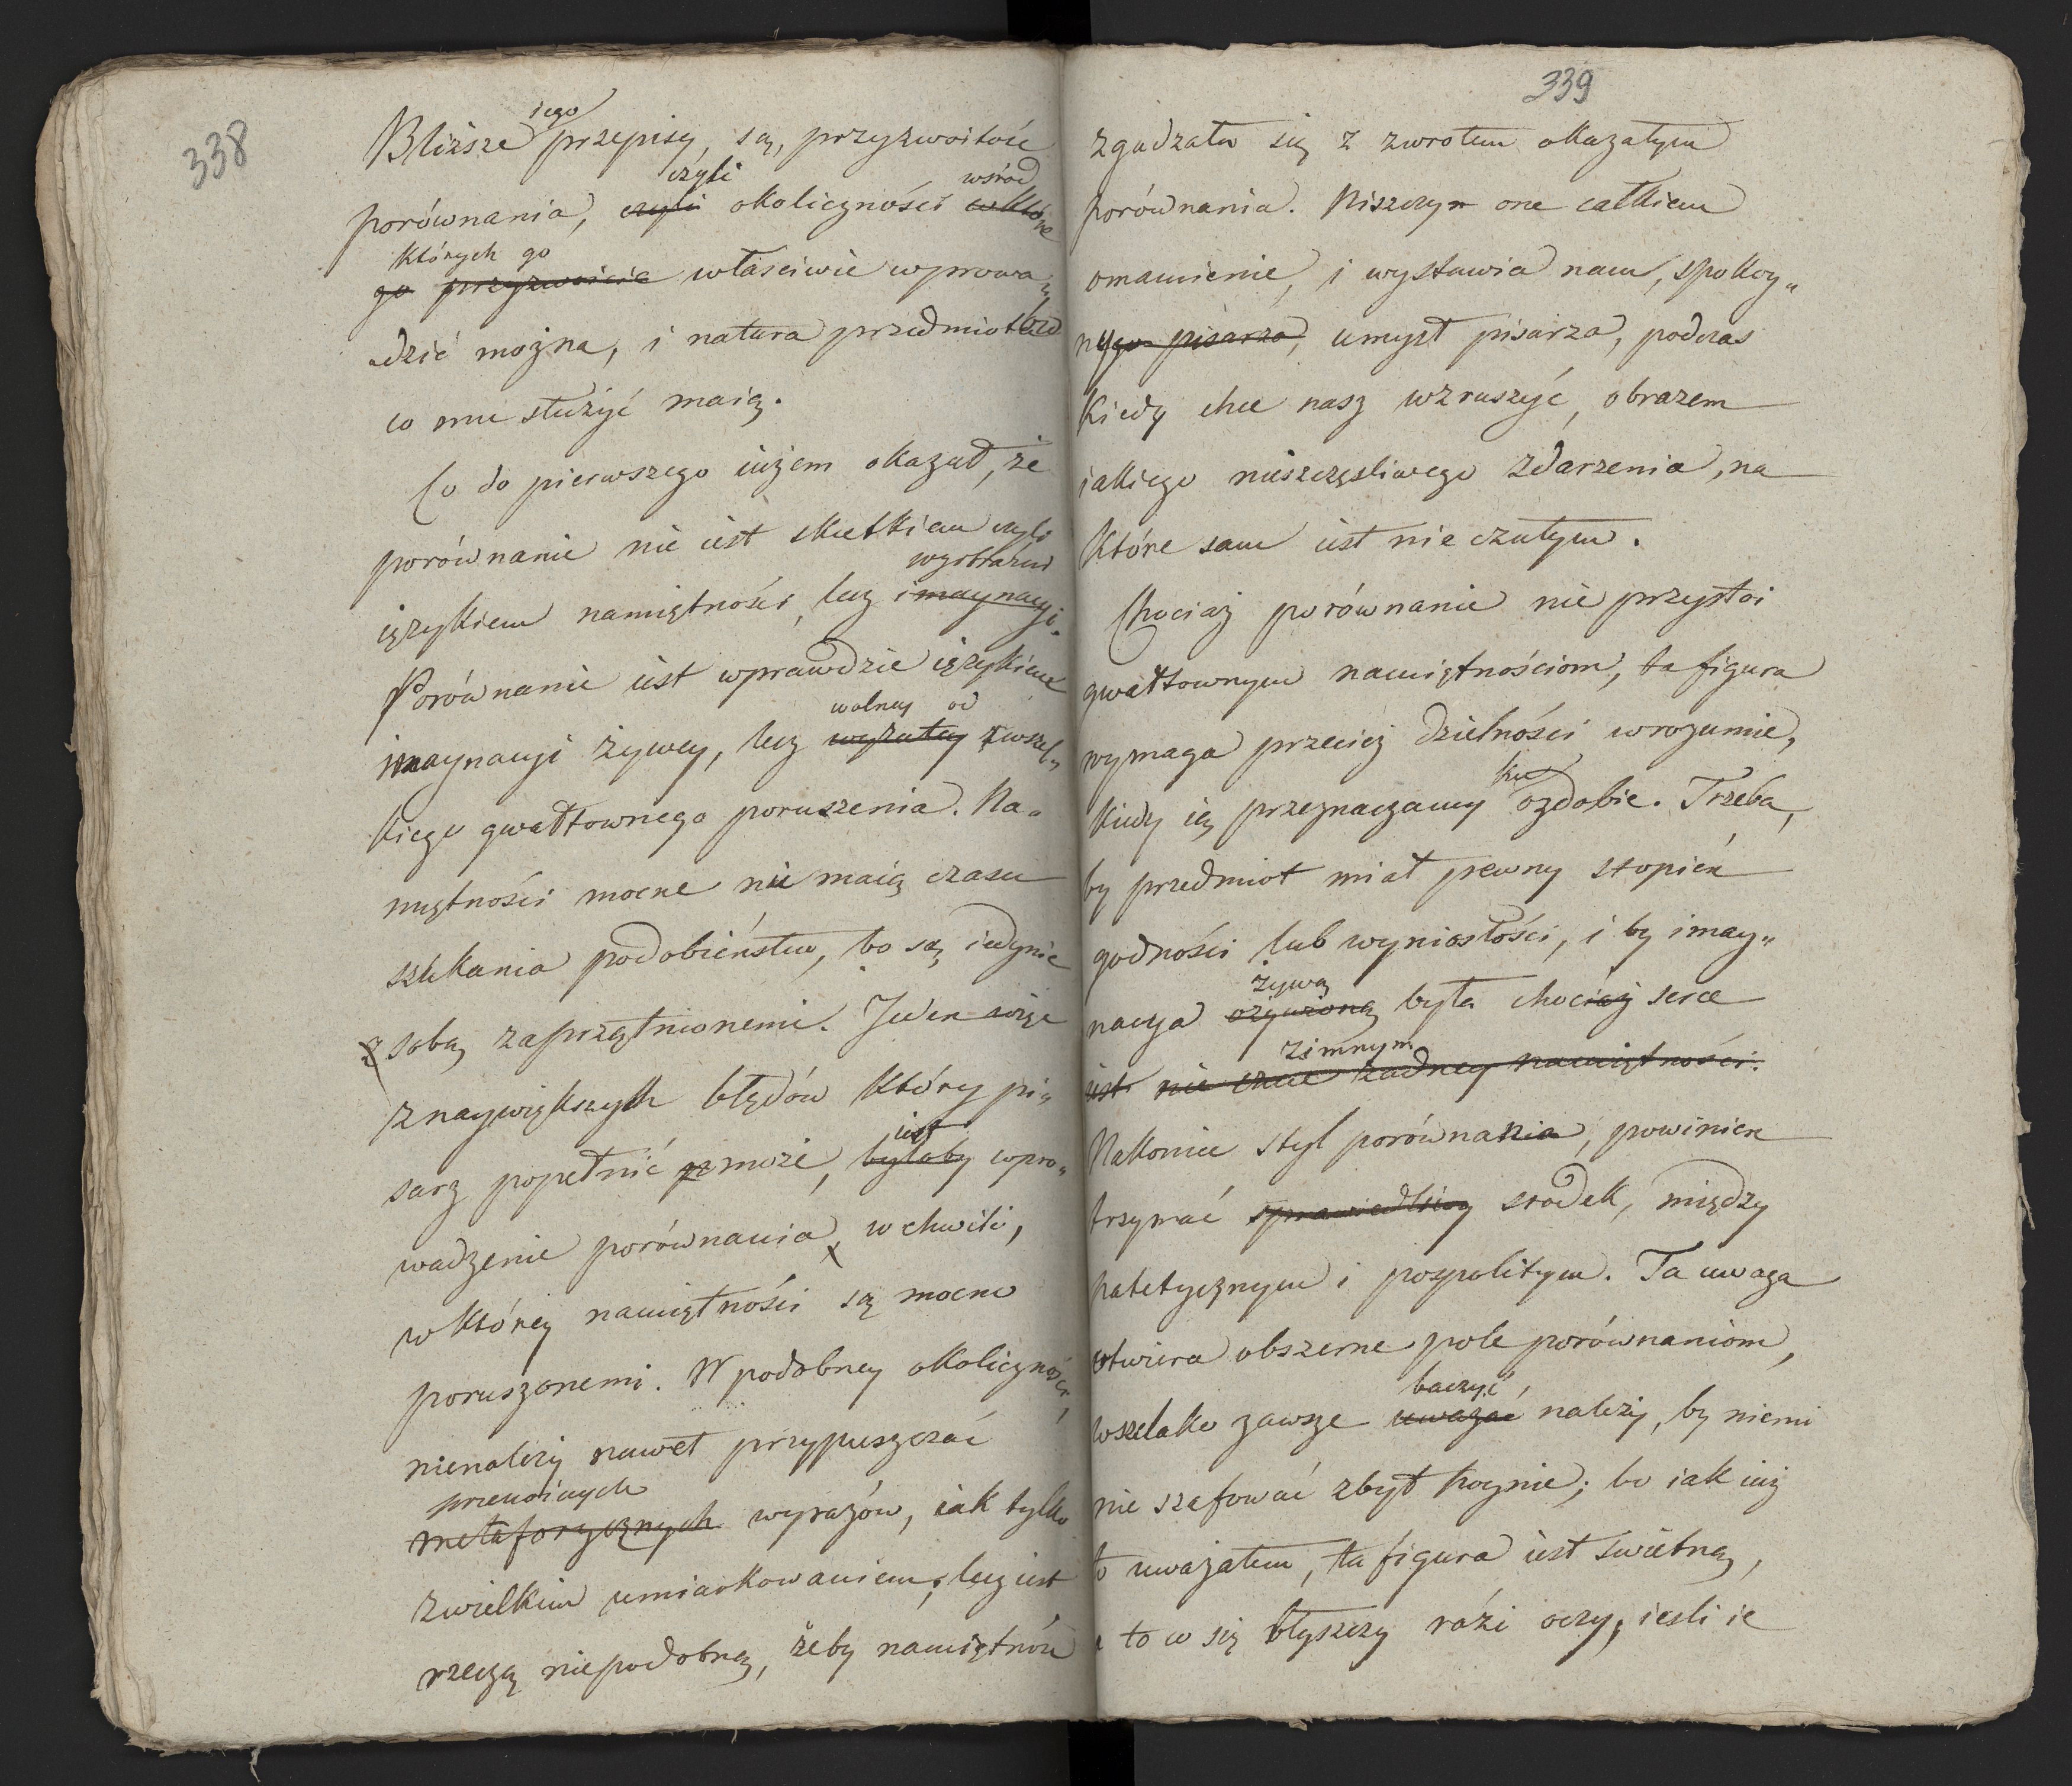 338
iego
Blizsze przepisy, są, przyzwoitość
czyli wśród
porównania, czyli okoliczności w które
których go
go przyzwoicie właściwie wprowa„
dzić można, i natura przedmiotów
co mu służyć maią.
Co do pierwszego iużem okazał, że
porównanie nie iest skutkiem czyli
wyobraźni
ięzykiem namiętności, lecz imaynacyi.
Porównanie iest wprawdzie ięzykiem
wolney od
imaynacyi żywey, lecz wyzutey z wszel„
kiego gwałtownego poruszenia. Na„
miętności mocne nie maią czasu
szukania podobieństw, bo są iedynie
z sobą zaprzątnionemi. Jeden więc
z naywiększych błędów który pi„
iest
sarz popełnić może, byłoby wpro„
wadzenie porównania, w chwili,
w którey namiętności są mocno
poruszonemi. W podobney okoliczności,
nienależy nawet przypuszczać
przenośnych
metaforycznych wyrazów, iak tylko
z wielkim umiarkowaniem; lecz iest
rzeczą niepodobną, żeby namiętność
339
zgadzała się z zwrotem okazałym
porównania. Niszczy one całkiem
omamienie, i wystawia nam, spokoy„
nego pisarza, umysł pisarza, podczas
kiedy chce nasz wzruszyć, obrazem
iakiego nieszczęsliwego zdarzenia, na
które sam iest nie czułym.
Chociaż porównanie nie przystoi
gwałtownym namiętnościom, ta figura
wymaga przecież dzielności w rozumie,
ku
kiedy ią przeznaczamy ozdobie. Trzeba,
by przedmiot miał pewny stopień
godności lub wyniosłości, i by imay„
żywą
nacya ożywioną była chociaż serce
zimnym
iest nie czuie żadney namiętności.
Nakoniec styl porównania, powinien
trzymać sprawiedliwy srodek, między
patetycznym i pospolitym. Ta uwaga
otwiera obszerne pole porównaniom,
baczyć
wszelako zawsze uważać należy, by niemi
nie szafować zbyt hoynie; bo iak iuż
to uważałem, ta figura iest swietną,
a to co się błyszczy razi oczy, iesli ie